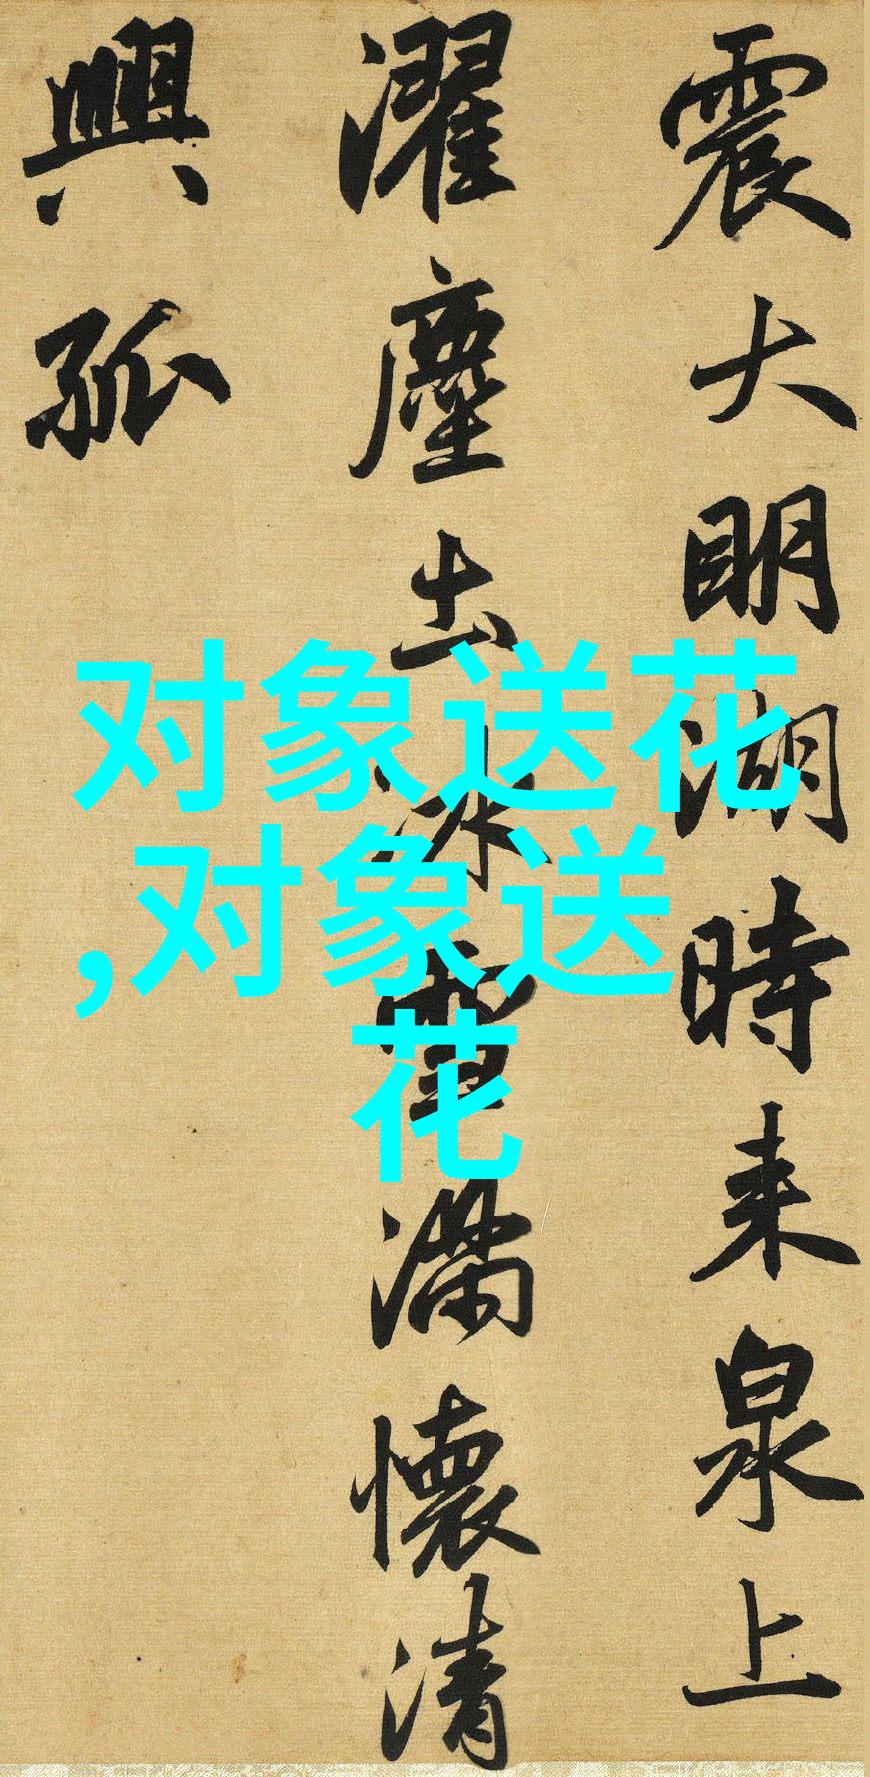 震大明湖時来泉上
濯塵土冰雪滿懷清
興孤
对象送花
,对象送
花